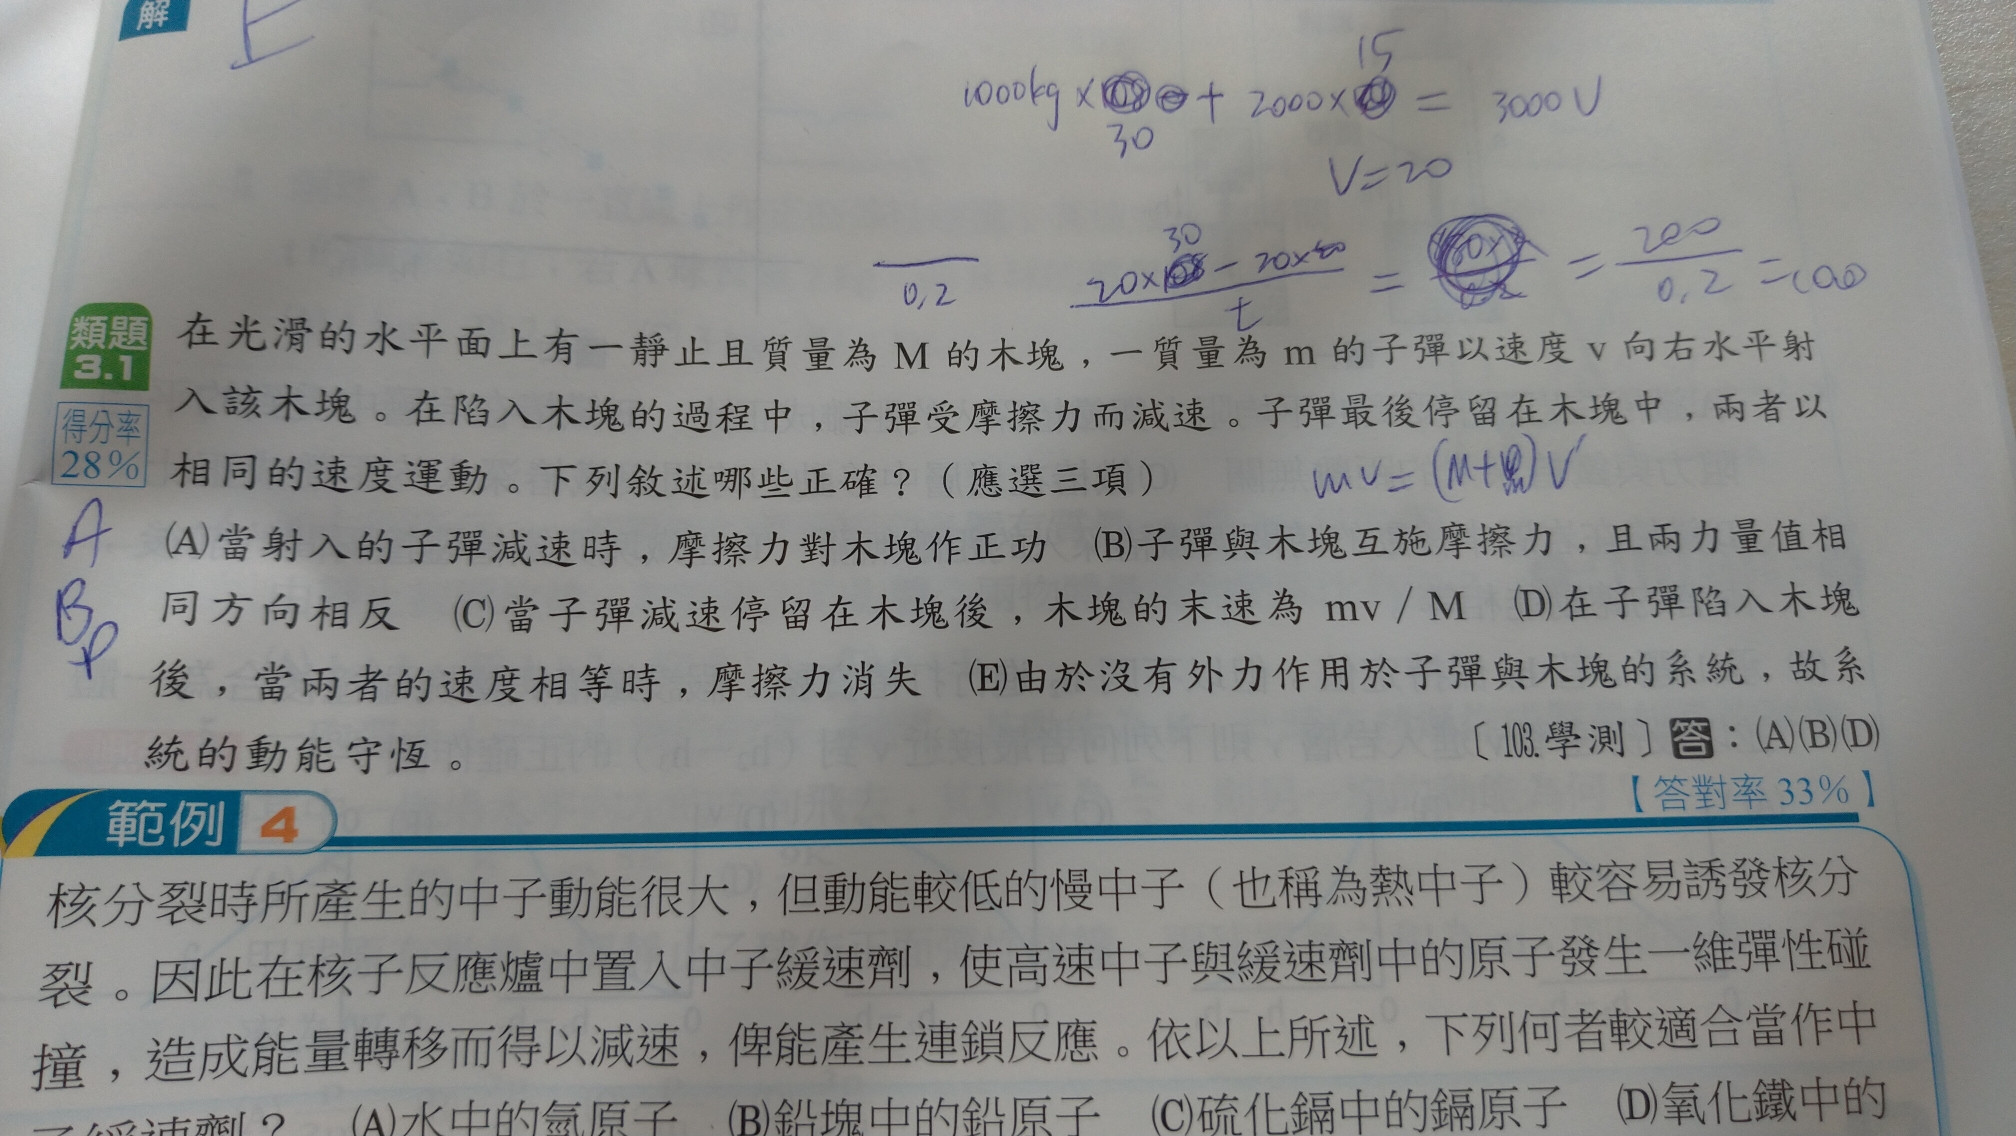 解
E
15
1000kg × + 2000× = 3000V
30
V=20
30
0,2
20× - 20×
t
=
= 200
0,2
類題
3.1
得分率
28%
在光滑的水平面上有一靜止且質量為 M 的木塊,一質量為 m 的子彈以速度 v 向右水平射
入該木塊。在陷入木塊的過程中,子彈受摩擦力而減速。子彈最後停留在木塊中,兩者以
相同的速度運動。下列敘述哪些正確?(應選三項)
mv=(M+m)V
A
B
D
(A)當射入的子彈減速時,摩擦力對木塊作正功 (B)子彈與木塊互施摩擦力,且兩力量值相
同方向相反 (C)當子彈減速停留在木塊後,木塊的末速為 mv / M (D)在子彈陷入木塊
後,當兩者的速度相等時,摩擦力消失 (E)由於沒有外力作用於子彈與木塊的系統,故系
統的動能守恆。
〔103.學測〕答:(A)(B)(D)
【答對率 33%】
範例 4
核分裂時所產生的中子動能很大,但動能較低的慢中子(也稱為熱中子)較容易誘發核分
裂。因此在核子反應爐中置入中子緩速劑,使高速中子與緩速劑中的原子發生一維彈性碰
撞,造成能量轉移而得以減速,俾能產生連鎖反應。依以上所述,下列何者較適合當作中
子緩速劑? (A)水中的氫原子 (B)鉛塊中的鉛原子 (C)硫化鎘中的鎘原子 (D)氧化鐵中的